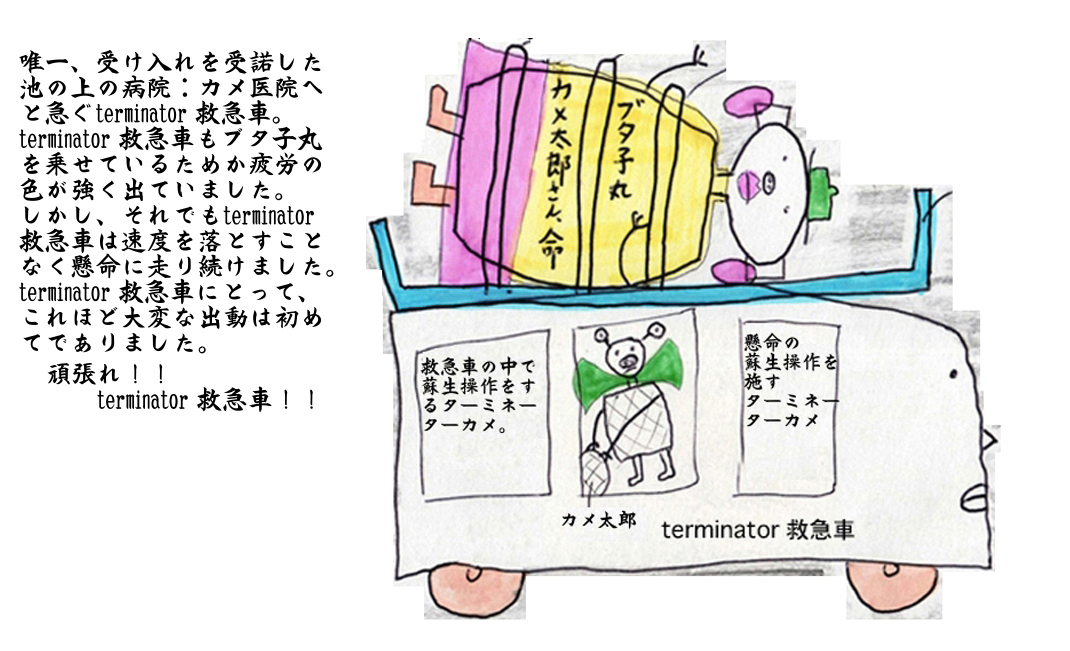 唯一、受け入れを受諾した
池の上の病院：カメ医院へ
と急ぐterminator 救急車。
terminator 救急車もブタ子丸
を乗せているためか疲労の
色が強く出ていました。
しかし、それでもterminator
救急車は速度を落とすこと
なく懸命に走り続けました。
terminator 救急車にとって、
これほど大変な出動は初め
てでありました。
頑張れ！！
terminator 救急車！！
ブタ子丸
カメ太郎さん、命
救急車の中で
蘇生操作をす
るターミネー
ターカメ。
懸命の
蘇生操作を
施す
ターミネー
ターカメ
カメ太郎
terminator 救急車